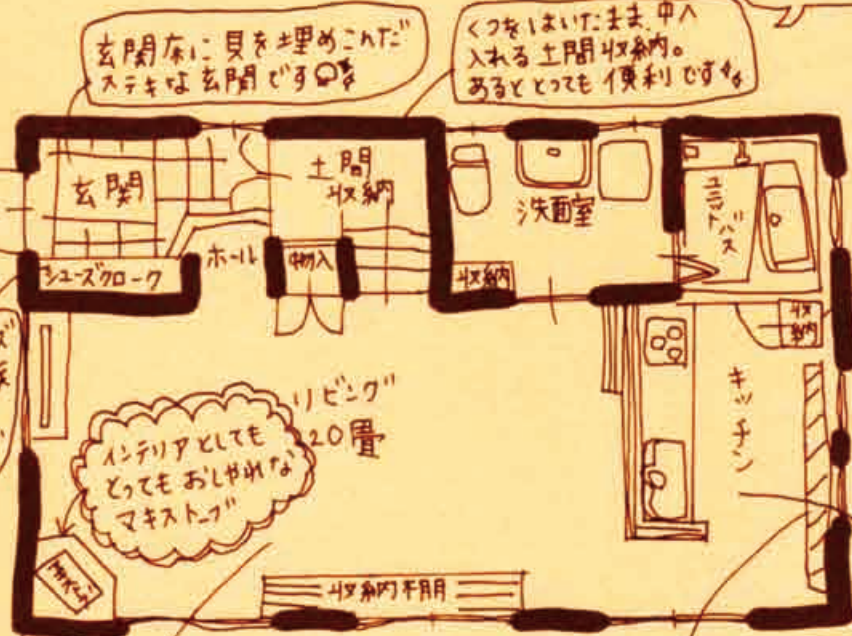 玄関床に貝を埋めこんだ
ステキな玄関です
くつをはいたまま中へ
入れる土間収納。
あるととっても便利です
玄関
土間
収納
洗面室
ユニットバス
シューズクローク
ホール
物入
収納
収納
キッチン
リビング
20畳
インテリアとしても
とってもおしゃれな
マキストーブ